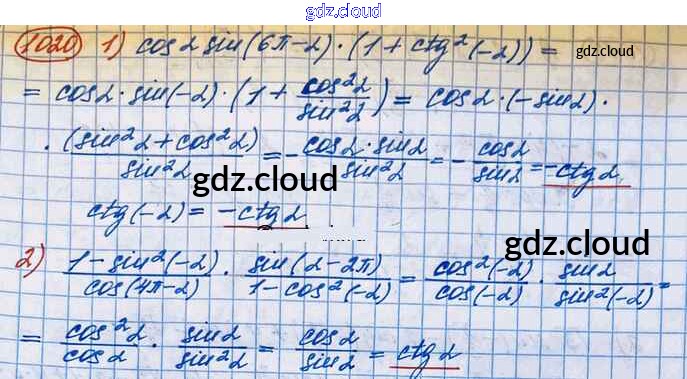 gdz.cloud
1020 1) cosα sin(6π-α)·(1+ctg²(-α)) = gdz.cloud
= cosα·sin(-α)·(1+cos²α/sin²α) = cosα·(-sinα)·
·(sin²α+cos²α)/sin²α = -cosα·sinα/sin²α = -cosα/sinα = -ctgα
gdz.cloud
ctg(-α) = -ctgα
gdz.cloud
2) (1-sin²(-α))/cos(4π-α) · sin(α-2π)/(1-cos²(-α)) = cos²(-α)/cos(-α) · sinα/sin²(-α) =
= cos²α/cosα · sinα/sin²α = cosα/sinα = ctgα